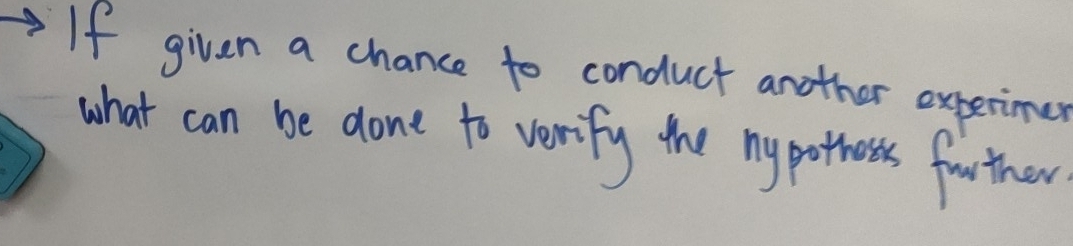 → If given a chance to conduct another experimen
what can be done to verify the hypothesis further.